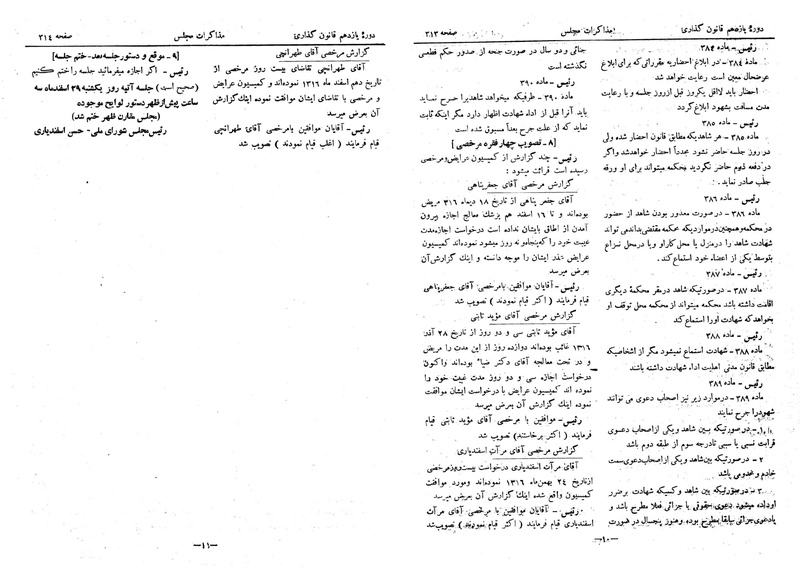 دورهٔ یازدهم قانون گذاری
مذاکرات مجلس
صفحه ۳۱۳
رئیس - ماده ۳۸۴
ماده ۳۸۴ - در ابلاغ احضاریه مقرراتی که برای ابلاغ
عرضحال معین است رعایت خواهد شد
احضار باید لااقل یکروز قبل از روز جلسه و با رعایت
مدت مسافت بشهود ابلاغ گردد
رئیس - ماده ۳۸۵
ماده ۳۸۵ - هر شاهدیکه مطابق قانون احضار شده ولی
در روز جلسه حاضر نشود مجدداً احضار خواهد شد و اگر
در دفعه دوم حاضر نگردید محکمه میتواند برای او ورقه
جلب صادر نماید .
رئیس - ماده ۳۸۶
ماده ۳۸۶ - در صورت معذور بودن شاهد از حضور
در محکمه و همچنین در مواردیکه محکمه مقتضی بداند می تواند
شهادت شاهد را در منزل یا محل کار او و یا در محل نزاع
بتوسط یکی از اعضاء خود استماع کند .
رئیس - ماده ۳۸۷
ماده ۳۸۷ - در صورتیکه شاهد در مقر محکمهٔ دیگری
اقامت داشته باشد محکمه میتواند از محکمه محل توقف او
بخواهد که شهادت او را استماع کند
رئیس - ماده ۳۸۸
ماده ۳۸۸ - شهادت استماع نمیشود مگر از اشخاصیکه
مطابق قانون مدنی اهلیت اداء شهادت داشته باشند
رئیس - ماده ۳۸۹
ماده ۳۸۹ - در موارد زیر نیز اصحاب دعوی می توانند
شهود را جرح نمایند
۱ - در صورتیکه بین شاهد و یکی از اصحاب دعوی
قرابت نسبی یا سببی تا درجه سوم از طبقه دوم باشد
۲ - در صورتیکه بین شاهد و یکی از اصحاب دعوی سمت
خادم و مخدومی باشد
۳ - در صورتیکه بین شاهد و کسیکه شهادت بر ضرر
او داده میشود دعوی حقوقی یا جزائی فعلا مطرح باشد و
یا دعوی جزائی سابقا مطرح بوده و هنوز پنجسال در صورت
جنائی و دو سال در صورت جنحه از صدور حکم قطعی
نگذشته است
رئیس - ماده ۳۹۰
ماده ۳۹۰ - طرفیکه میخواهد شاهد را جرح نماید
باید آنرا قبل از اداء شهادت اظهار دارد مگر اینکه ثابت
نماید که از علت جرح بعداً مسبوق شده است
[ ۸ - تصویب چهار فقره مرخصی ]
رئیس - چند گزارش از کمیسیون عرایض و مرخصی
رسیده است قرائت میشود :
گزارش مرخصی آقای جعفر پناهی
آقای جعفر پناهی از تاریخ ۱۸ دیماه ۳۱۶ مریض
بوده‌اند و تا ۱۶ اسفند هم پزشک معالج اجازه بیرون
آمدن از اطاق بایشان نداده است درخواست اجازه مدت
غیبت خود را که پنجاه و نه روز میشود نموده‌اند کمیسیون
عرایض عذر ایشان را موجه دانسته و اینک گزارش آن
بعرض میرسد
رئیس - آقایان موافقین با مرخصی آقای جعفر پناهی
قیام فرمایند ( اکثر قیام نمودند ) تصویب شد
گزارش مرخصی آقای مؤید ثابتی
آقای مؤید ثابتی سی و دو روز از تاریخ ۲۸ آذر
۱۳۱۶ غائب بوده‌اند دوازده روز از این مدت را مریض
و در تحت معالجه آقای دکتر ضیاء بوده‌اند و اکنون
درخواست اجازه سی و دو روز مدت غیبت خود را
نموده اند کمیسیون عرایض با درخواست ایشان موافقت
نموده اینک گزارش آن بعرض میرسد
رئیس - موافقین با مرخصی آقای مؤید ثابتی قیام
فرمایند ( اکثر برخاستند ) تصویب شد
گزارش مرخصی آقای مرآت اسفندیاری
آقای مرآت اسفندیاری درخواست بیست روز مرخصی
از تاریخ ۲۴ بهمن ماه ۱۳۱۶ نموده‌اند و مورد موافقت
کمیسیون واقع شده اینک گزارش آن بعرض میرسد
رئیس - آقایان موافقین با مرخصی آقای مرآت
اسفندیاری قیام فرمایند ( اکثر قیام نمودند ) تصویب شد
—۱۰—
دورهٔ یازدهم قانون گذاری
مذاکرات مجلس
صفحه ۳۱۴
گزارش مرخصی آقای طهرانچی
آقای طهرانچی تقاضای بیست روز مرخصی از
تاریخ دهم اسفند ماه ۱۳۱۶ نموده‌اند و کمیسیون عرایض
و مرخصی با تقاضای ایشان موافقت نموده اینک گزارش
بعرض میرسد
رئیس - آقایان موافقین با مرخصی آقای طهرانچی
قیام فرمایند ( اغلب قیام نمودند ) تصویب شد
[ ۹ - موقع و دستور جلسه بعد - ختم جلسه ]
رئیس - اگر اجازه میفرمائید جلسه را ختم کنیم
(صحیح است) جلسه آتیه روز یکشنبه ۲۹ اسفند ماه سه
ساعت پیش از ظهر دستور لوایح موجوده
(مجلس مقارن ظهر ختم شد)
رئیس مجلس شورای ملی - حسن اسفندیاری
—۱۱—